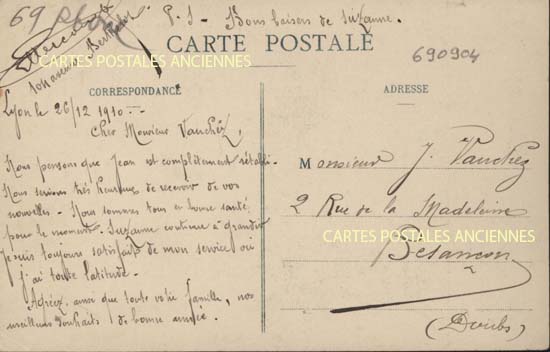 69 Rhône
P.S - Bons baisers de Suzanne.
CARTE POSTALE
690904
CARTES POSTALES ANCIENNES
CORRESPONDANCE
ADRESSE
Lyon le 26/12 1910
Cher Monsieur Vauchez,
Nous pensons que Jean est complètement rétabli.
Nous serions très heureux de recevoir de vos
nouvelles. Nous sommes tous en bonne santé
pour le moment. Suzanne continue à grandir
je suis toujours satisfait de mon service où
j'ai toute latitude.
Agréez, ainsi que toute votre famille, nos
meilleurs souhaits de bonne année.
Monsieur J. Vauchez
2 Rue de la Madeleine
CARTES POSTALES ANCIENNES
Besançon
(Doubs)